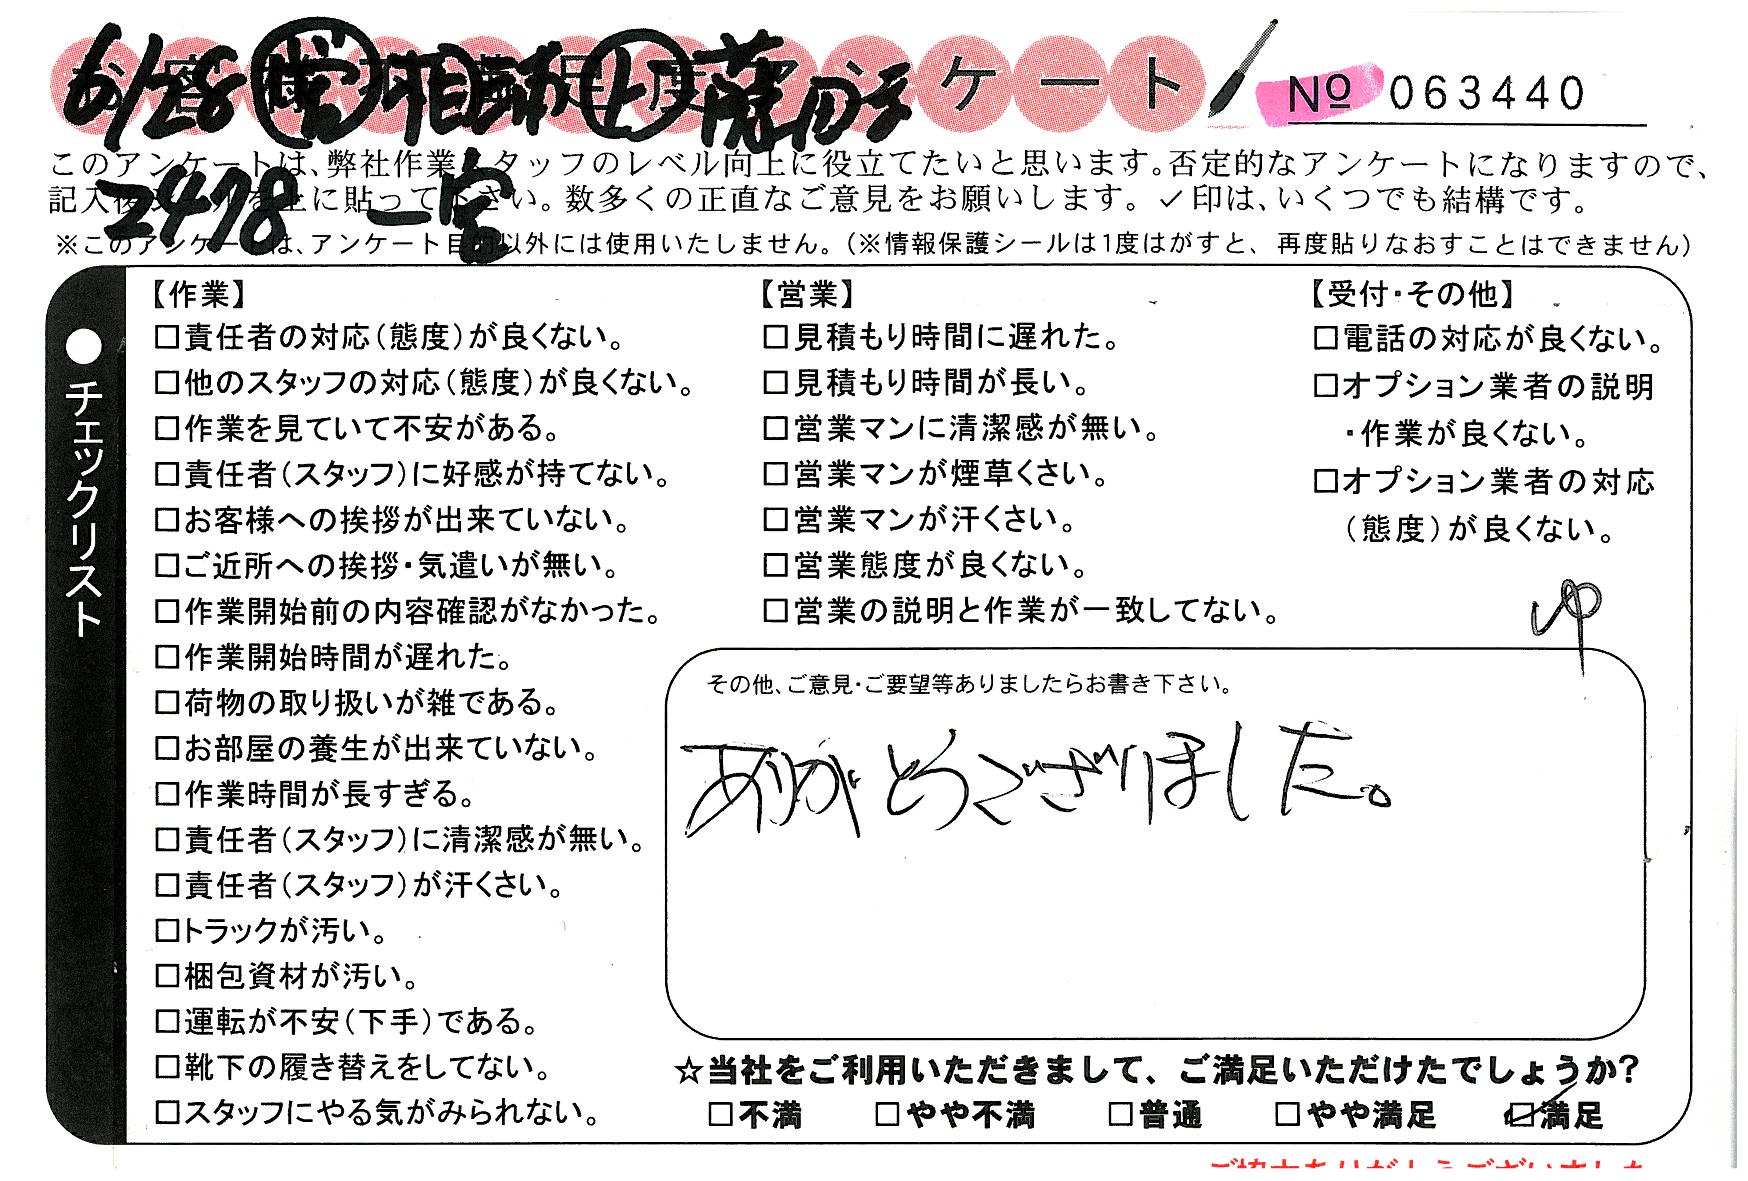 6/28 営 相 藤田
お客様満足度アンケート No 063440
このアンケートは、弊社作業スタッフのレベル向上に役立てたいと思います。否定的なアンケートになりますので、
記入後シールを上に貼って下さい。数多くの正直なご意見をお願いします。✓印は、いくつでも結構です。
2478 一宮
※このアンケートは、アンケート目的以外には使用いたしません。(※情報保護シールは1度はがすと、再度貼りなおすことはできません)
●チェックリスト
【作業】
□責任者の対応(態度)が良くない。
□他のスタッフの対応(態度)が良くない。
□作業を見ていて不安がある。
□責任者(スタッフ)に好感が持てない。
□お客様への挨拶が出来ていない。
□ご近所への挨拶・気遣いが無い。
□作業開始前の内容確認がなかった。
□作業開始時間が遅れた。
□荷物の取り扱いが雑である。
□お部屋の養生が出来ていない。
□作業時間が長すぎる。
□責任者(スタッフ)に清潔感が無い。
□責任者(スタッフ)が汗くさい。
□トラックが汚い。
□梱包資材が汚い。
□運転が不安(下手)である。
□靴下の履き替えをしてない。
□スタッフにやる気がみられない。
【営業】
□見積もり時間に遅れた。
□見積もり時間が長い。
□営業マンに清潔感が無い。
□営業マンが煙草くさい。
□営業マンが汗くさい。
□営業態度が良くない。
□営業の説明と作業が一致してない。
【受付・その他】
□電話の対応が良くない。
□オプション業者の説明
・作業が良くない。
□オプション業者の対応
(態度)が良くない。
ゆ
その他、ご意見・ご要望等ありましたらお書き下さい。
ありがとうございました。
☆当社をご利用いただきまして、ご満足いただけたでしょうか?
□不満 □やや不満 □普通 □やや満足 ☑満足
ご協力ありがとうございました